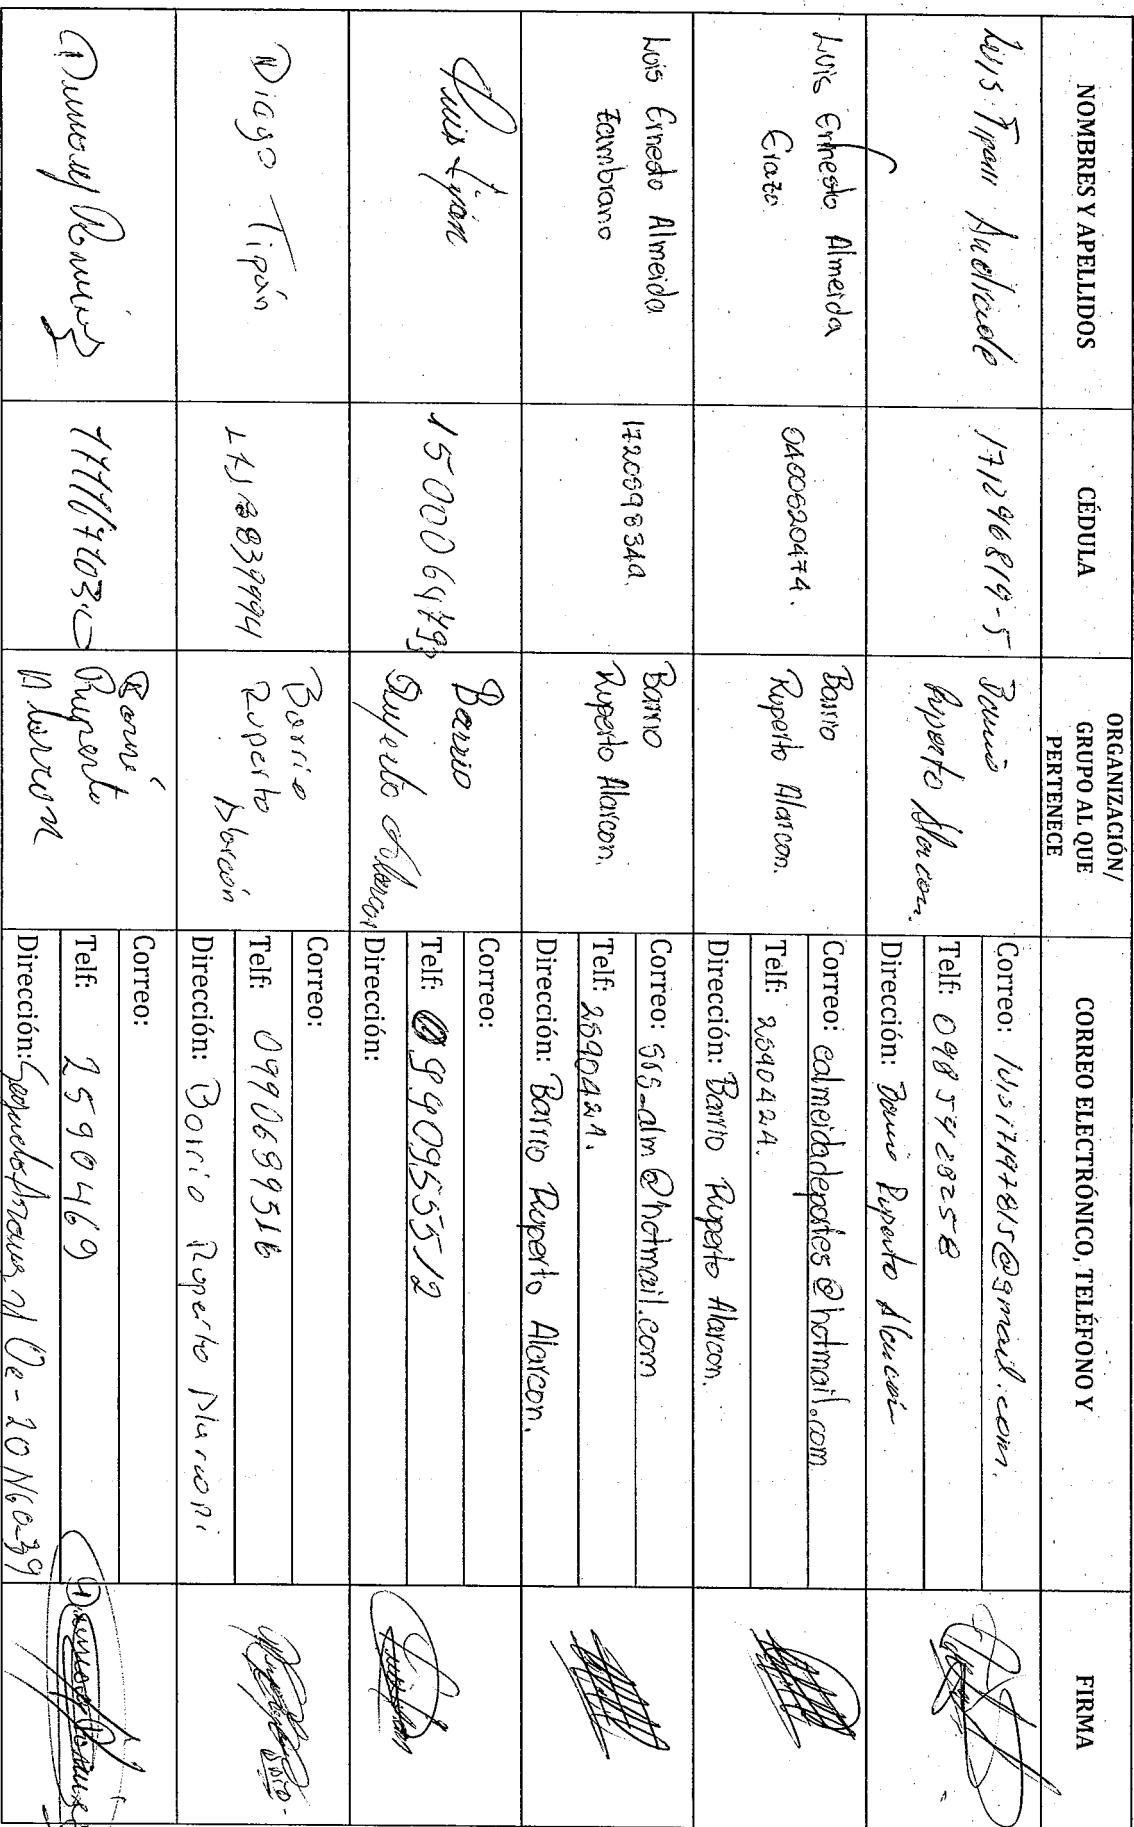 NOMBRES Y APELLIDOS
CÉDULA
ORGANIZACIÓN/
GRUPO AL QUE
PERTENECE
CORREO ELECTRÓNICO, TELÉFONO Y
FIRMA
Luis Tipan Andrade
171296819-5
Barrio
Ruperto Alarcon.
Correo: @gmail.com.
Telf: 0985428258
Dirección: Barrio Ruperto Alarcón
Luis Ernesto Almeida
Erazo
0400520474.
Barrio
Ruperto Alarcon.
Correo: calmeidadeportes@hotmail.com
Telf: 2590424.
Dirección: Barrio Ruperto Alarcon.
Luis Ernesto Almeida
Zambrano
Barrio
Ruperto Alarcon.
Correo: @hotmail.com
Telf: 2590424.
Dirección: Barrio Ruperto Alarcon.
Luis Tipán
Barrio
Ruperto Alarcon
Correo:
Telf: 0990955512
Dirección:
Diego Tipán
Barrio
Ruperto
Alarcón
Correo:
Telf: 0990699516
Dirección: Barrio Ruperto Alarcon
Ramirez
Ruperto
Alarcon
Correo:
Telf: 2590469
Dirección: Oe-20 N60-39